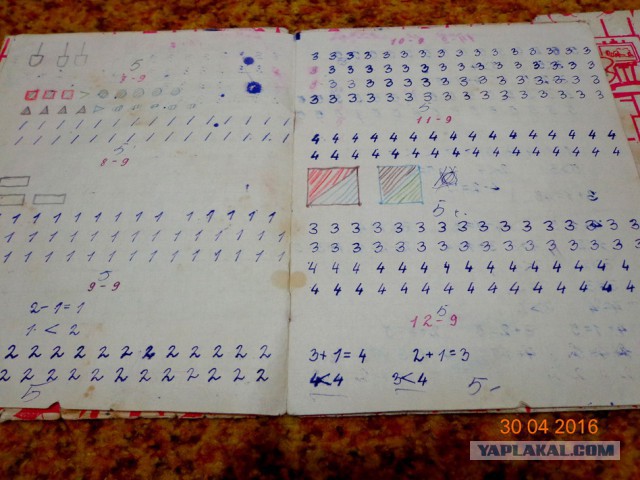 5
1 1 1 1 1 1 1 1 1 1 1 1 1 1
1 1 1 1 1 1 1 1 1 1 1 1 1 1
5
8-9
1 1 1 1 1 1 1 1 1 1 1 1 1 1
1 1 1 1 1 1 1 1 1 1 1 1 1 1
1 1 1 1 1 1 1 1 1 1 1 1 1 1
5
9-9
2-1=1
1<2
2 2 2 2 2 2 2 2 2 2 2 2
2 2 2 2 2 2 2 2 2 2 2 2
5
10-9
3 3 3 3 3 3 3 3 3 3 3 3 3 3 3 3 3
3 3 3 3 3 3 3 3 3 3 3 3 3 3 3 3 3
3 3 3 3 3 3 3 3 3 3 3 3 3 3 3 3 3
3 3 3 3 3 3 3 3 3 3 3 3 3 3 3 3 3
5
11-9
4 4 4 4 4 4 4 4 4 4 4 4 4 4 4
4 4 4 4 4 4 4 4 4 4 4 4 4 4 4
5
3 3 3 3 3 3 3 3 3 3 3 3 3 3 3 3 3
3 3 3 3 3 3 3 3 3 3 3 3 3 3 3 3 3
4 4 4 4 4 4 4 4 4 4 4 4 4 4 4
4 4 4 4 4 4 4 4 4 4 4 4 4 4 4
5
12-9
3+1=4 2+1=3
4<4 3<4 5-
30 04 2016
YAPLAKAL.COM